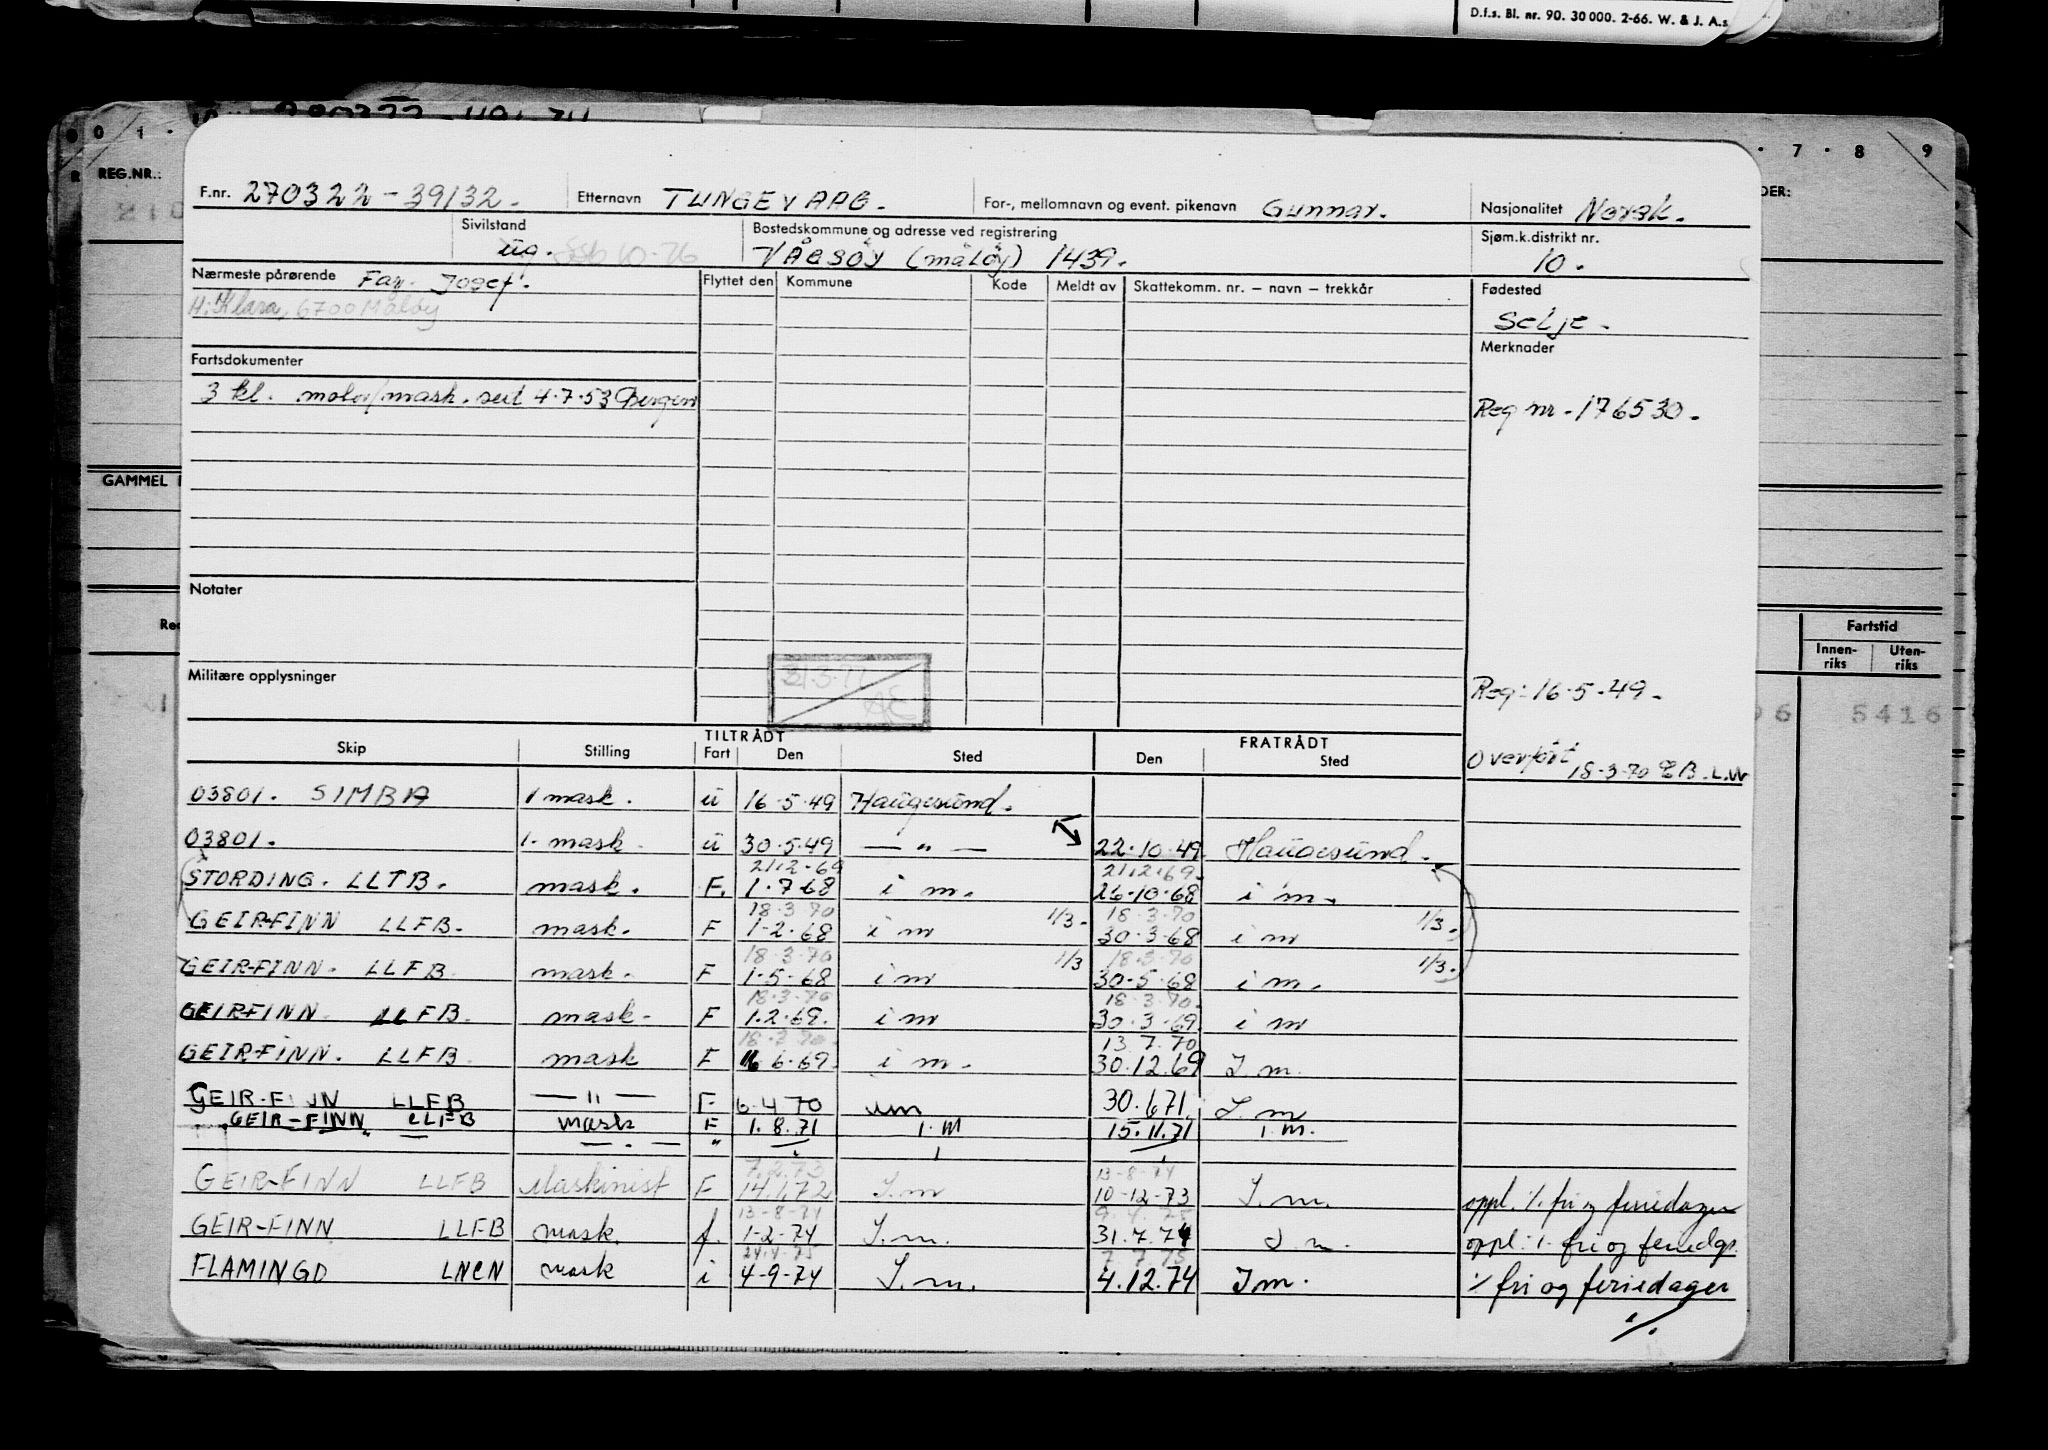 D.f.s. Bl. nr. 90. 30 000. 2-66. W. & J. A.s
0 1 · 7 · 8 9
REG.NR.:
DER:
F.nr. 270322-39132. Etternavn TUNGEVAAG. For-, mellomnavn og event. pikenavn Gunnar. Nasjonalitet Norsk.
Sivilstand ug. Bostedskommune og adresse ved registrering Sjøm.k.distrikt nr.
VÅGSØY (måløy) 1439. 10.
Nærmeste pårørende Far. Josef. Flyttet den Kommune Kode Meldt av Skattekomm. nr. – navn – trekkår Fødested
H: Klara, 6700 Måløy Selje.
Fartsdokumenter Merknader
3 kl. motor/mask. sert 4.7.53 Bergen Reg nr - 176530.
GAMMEL
Notater
Fartstid
Innen-riks Uten-riks
Militære opplysninger
Reg: 16.5.49.
5416
TILTRÅDT FRATRÅDT
Skip Stilling Fart Den Sted Den Sted Overført 18-3-70
03801. SIMBA 1 mask. u 16-5-49 Haugesund.
03801. 1. mask. u 30.5.49 — " — 22.10.49. Haugesund.
21.12.69 21.12.69.
STORDING. LLTB. mask. F. 1.7.68 i m. 26.10.68 i m.
18.3.70 1/3. 18.3.70 1/3.
GEIR-FINN LLFB. mask. F 1-2.68 i m 30.3.68 i m
18.3.70 1/3 18.3.70 1/3.
GEIR-FINN. LLFB mask. F 1.5.68 i m 30.5.68 i m.
18.3.70 18.3.70.
GEIR-FINN. LLFB. mask. F 1.2.69. i m 30.3.69. i m
18.3.70. 13.7.70
GEIR-FINN. LLFB mask F 6.69. i m. 30.12.69 I.m.
GEIR-FINN LLFB — " — F 6.4.70 um 30.6.71. I.m
GEIR-FINN LLFB mask F 1.8.71 i.m 15.11.71 i.m.
7.2.73 13-8-74
GEIR-FINN LLFB Maskinist F 14.1.72 I.m 10-12-73 I.m. oppl. % fri og feriedager
13-8-74
GEIR-FINN LLFB mask. f. 1-2-74 I.m. 31.7.74 I.m. oppl: % fri og feriedgr.
24.4.75 7.7.75
FLAMINGO LNCN mask i 4-9-74 I.m. 4.12.74 I m. % fri og feriedager